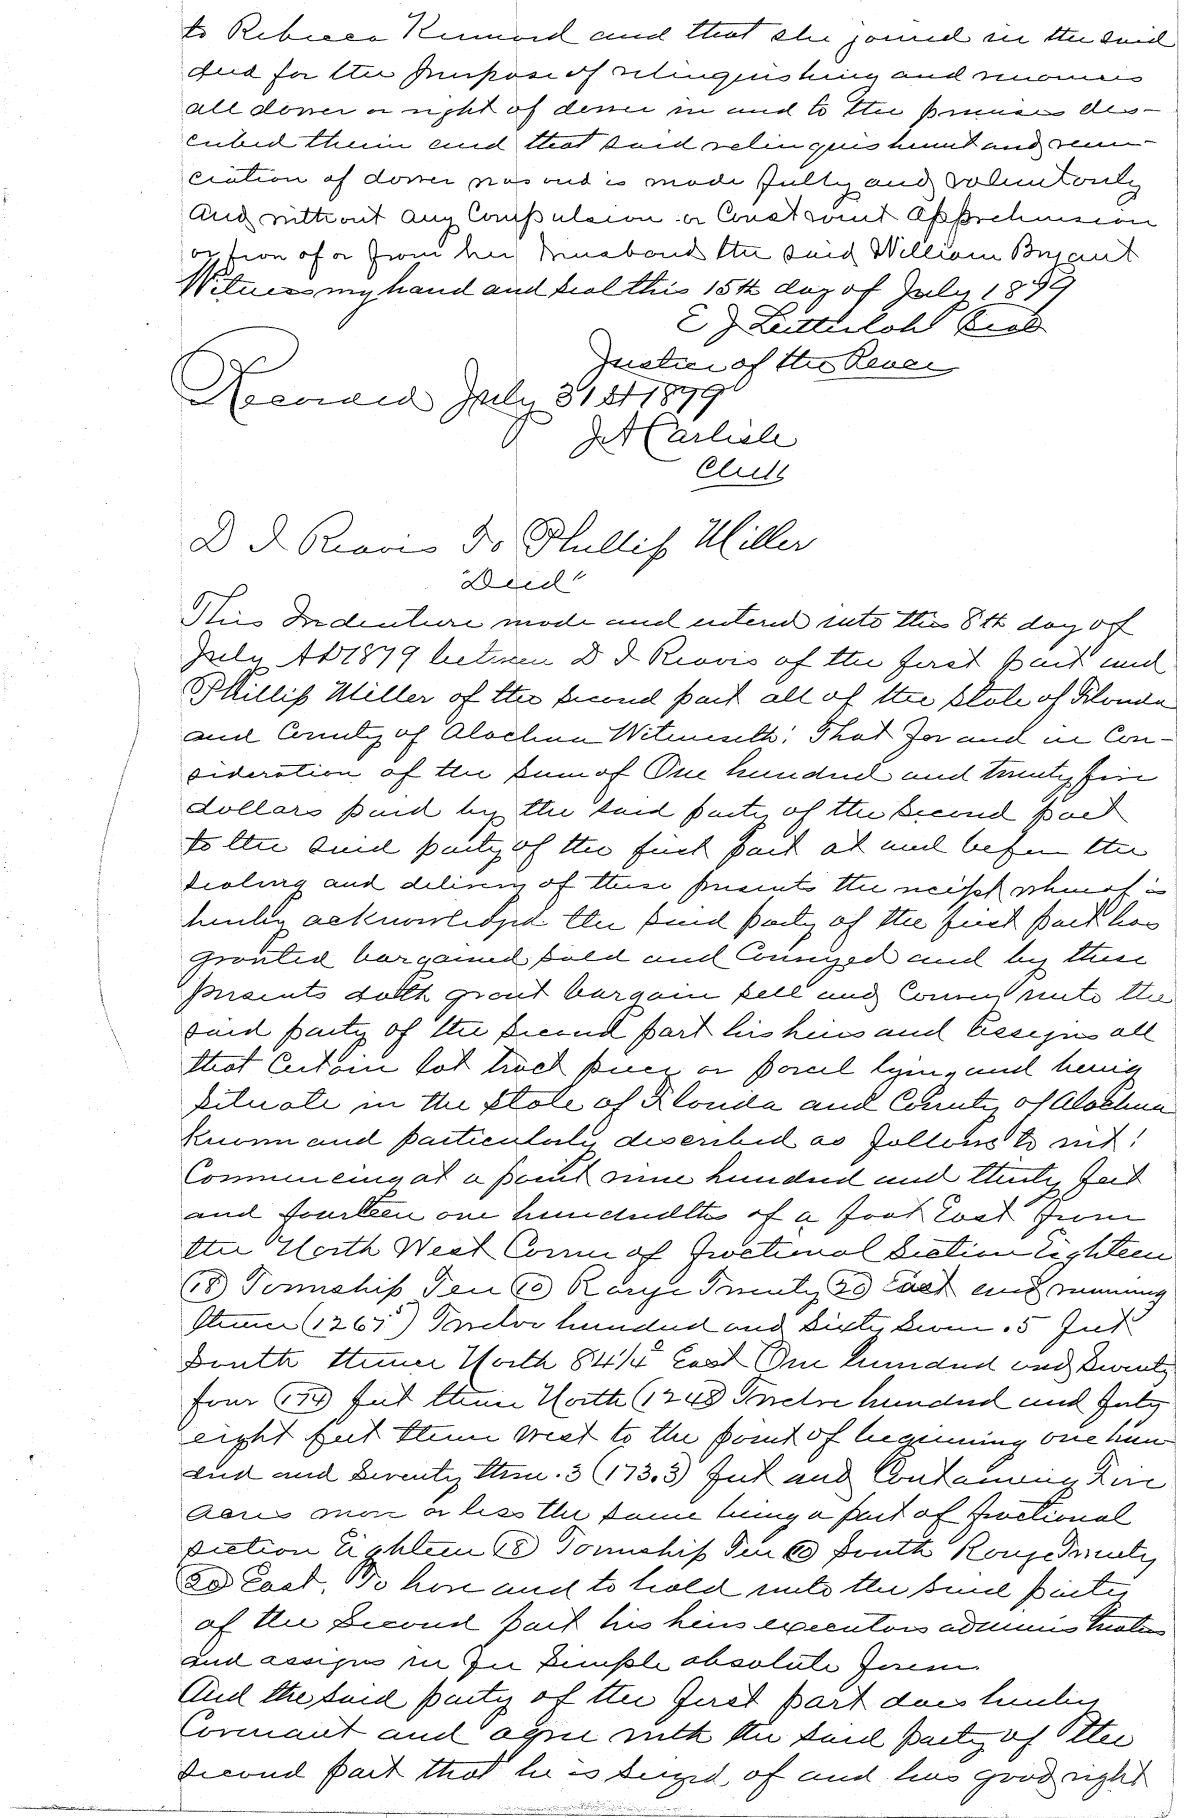 to Rebecca Kennard and that she joined in the said
deed for the purpose of relinquishing and renounce
all dower or right of dower in and to the premises des-
cribed therein and that said relinquishment and renun-
ciation of dower was and is made fully and voluntarily
And without any Compulsion or Constraint Apprehension
or fear of or from her husband the said William Bryant
Witness my hand and seal this 15th day of July 1879
E J Lutterloh Seal
Justice of the Peace
Recorded July 31st 1879
J A Carlisle
Clerk
D I Reavis To Phillip Miller
"Deed"
This Indenture made and entered into this 8th day of
July AD 1879 between D I Reavis of the first part and
Phillip Miller of the second part all of the State of Florida
and County of Alachua Witnesseth: That for and in Con-
sideration of the sum of One hundred and twenty five
dollars paid by the said party of the second part
to the said party of the first part at and before the
sealing and delivery of these presents the receipt whereof is
hereby acknowledged the said party of the first part has
granted bargained sold and Conveyed and by these
presents doth grant bargain sell and Convey unto the
said party of the second part his heirs and Assigns all
that Certain lot tract piece or parcel lying and being
situate in the State of Florida and County of Alachua
known and particularly described as follows to wit:
Commencing at a point nine hundred and thirty feet
and fourteen one hundredths of a foot East from
the North West Corner of fractional Section Eighteen
(18) Township Ten (10) Range Twenty (20) East and running
thence (1267.5) Twelve hundred and Sixty Seven .5 feet
South thence North 84¼° East One hundred and Seventy
four (174) feet thence North (1248) Twelve hundred and forty
eight feet thence west to the point of beginning one hun-
dred and Seventy three .3 (173.3) feet and Containing Five
acres more or less the same being a part of fractional
section Eighteen (18) Township Ten (10) South Range Twenty
(20) East. To have and to hold unto the said party
of the Second part his heirs executors administrators
and assigns in fee Simple absolute forever.
And the said party of the first part does hereby
Covenant and agree with the said party of the
second part that he is seized of and has good right